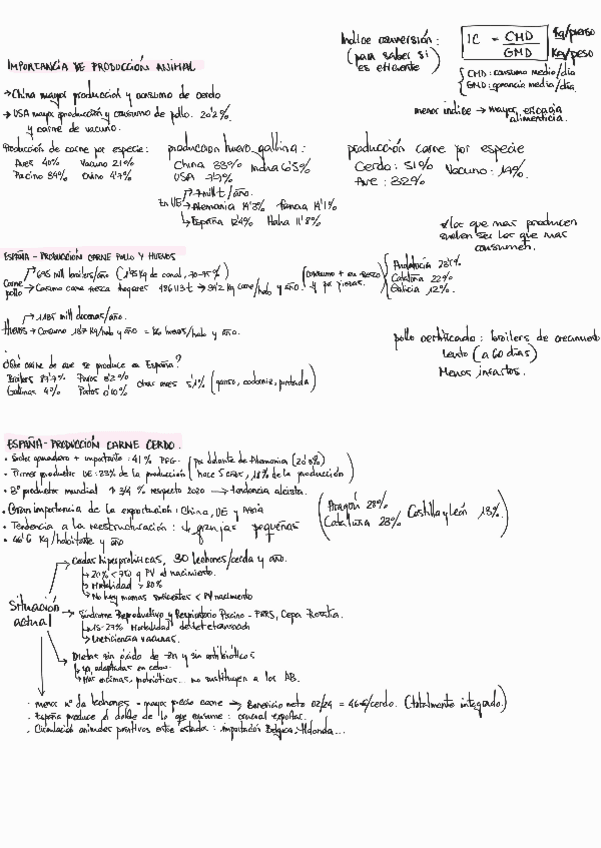 IMPORTANCIA DE PRODUCCIÓN ANIMAL
Indice conversión:
(para saber si
es eficiente)
IC = CMD / GMD
Kg/pienso
Kg/peso
CMD: consumo medio/día
GMD: ganancia media/día.
menor indice → mayor eficacia
alimenticia.
→ China mayor produccion y consumo de cerdo
→ USA mayor producción y consumo de pollo. 20'2%.
y carne de vacuno.
Producción de carne por especie:
Aves 40% Vacuno 21%
Porcino 34% Ovino 4'7%
produccion huevo gallina:
China 33% India 6'5%
USA 7'7%
→ mill t/año.
En UE → Alemania 14'3% Francia 14'1%
→ España 12'4% Italia 11'8%
producción carne por especie
Cerdo: 51% Vacuno: 14%.
Ave: 32%
*los que mas producen
suelen ser los que mas
consumen.
ESPAÑA - PRODUCCIÓN CARNE POLLO Y HUEVOS
Carne pollo
→ 695 mill broilers/año
→ Consumo carne fresca hogares
kg carne/hab y año.
Andalucía
Cataluña 22%
Galicia 12%.
→ 1185 mill docenas/año.
Huevos → Consumo
Kg/hab y año =
huevos/hab y año.
pollo certificado: broilers de crecimiento
lento (a 60 días)
Menos infartos.
¿Qué carne de ave se produce en España?
Broilers 87'7% Pavos
Gallinas 4% Patos
otras aves 5'1% (ganso, codorniz, pintada)
ESPAÑA - PRODUCCIÓN CARNE CERDO.
• Sector ganadero + importante: 41% PFG.
(por delante de Alemania (20'8%)
• Primer productor UE: 23% de la producción
(hace 5 años, 18% de la producción)
• 3º productor mundial ↑ 3/4 % respecto 2020 → tendencia alcista.
• Gran importencia de la exportación: China, UE y Asia
• Tendencia a la reestructuración: ↓ granjas pequeñas
(Aragón 28%
Cataluña 23% Castilla y León 13%.)
• 46'6 Kg/habitante y año
Situación
actual
Cerdas hiperprolíficas, 30 lechones/cerda y año.
→ 20% < g PV al nacimiento.
→ Mortalidad > 80%
→ No hay mamas suficientes < PV nacimiento
Síndrome Reproductivo y Respiratorio Porcino - PRRS, Cepa Rosalia.
→ 15-27% Mortalidad
→ Ineficiencia vacunas.
Dietas sin óxido de Zn y sin antibióticos
→ Ya adaptadas en cebo.
→ Hay enzimas, probióticos... no sustituyen a los AB.
• menor nº de lechones - mayor precio carne → Beneficio neto 02/24 = 46€/cerdo. (totalmente integrado.)
• España produce el doble de lo que consume: crucial exportar.
• Circulación animales positivos entre estados: importación Bélgica, Holanda...